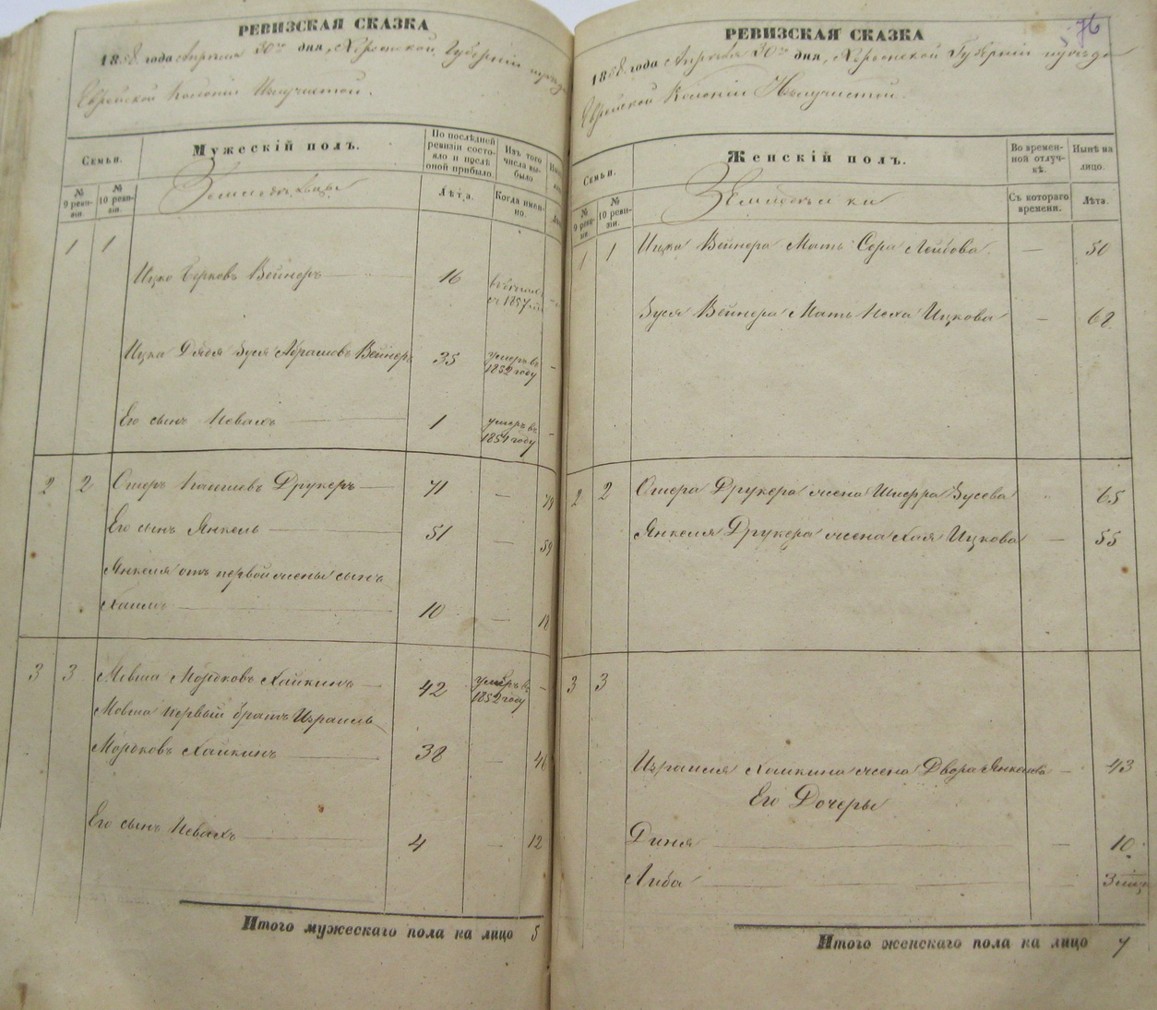 РЕВИЗСКАЯ СКАЗКА
1858 года апреля 30го дня, Херсонской Губернии
Еврейской Колонии
Семьи.
Мужескій полъ.
По послѣдней ревизіи состояло и послѣ оной прибыло.
Изъ того числа выбыло
№ 9 ревизіи.
№ 10 ревизіи.
Лѣта.
Когда именно.
1 1
Ицко Берковъ Вейнеръ 16
съ 1857
Ицка Дядя Зуся Абрамовъ Вейнеръ 35 умеръ въ 1852 году –
Его сынъ 1 умеръ въ 1854 году –
2 2 Дрukеръ 71 — 79
Его сынъ Янкель 51 — 59
Янкеля отъ первой жены сынъ
Хаимъ 10 — 18
3 3 Мовша Мордковъ Хайкинъ 42 умеръ въ 1852 году –
Мовши первый братъ Израиль
Мордковъ Хайкинъ 38 — 46
Его сынъ 4 — 12
Итого мужескаго пола на лицо 5
76
РЕВИЗСКАЯ СКАЗКА
1858 года Апреля 30го дня, Херсонской Губерніи
Еврейской Колоніи
Семьи.
Женскій полъ.
Во временной отлучкѣ.
Нынѣ на лицо.
№ 9 ревизіи.
№ 10 ревизіи.
Земледѣлки
Съ котораго времени.
Лѣта.
1 1 Ицки Вейнера Мать Сора Лейбова — 50
Зуси Вейнера Мать Ицкова — 62
2 2 Друкера жена Шифра Зусева 65
Янкеля Друкера жена Хая Ицкова — 55
3 3
Израиля Хайкина жена Двора Янкелева — 43
Его Дочеры
Диня — 10
Либа — 3
Итого женскаго пола на лицо 7